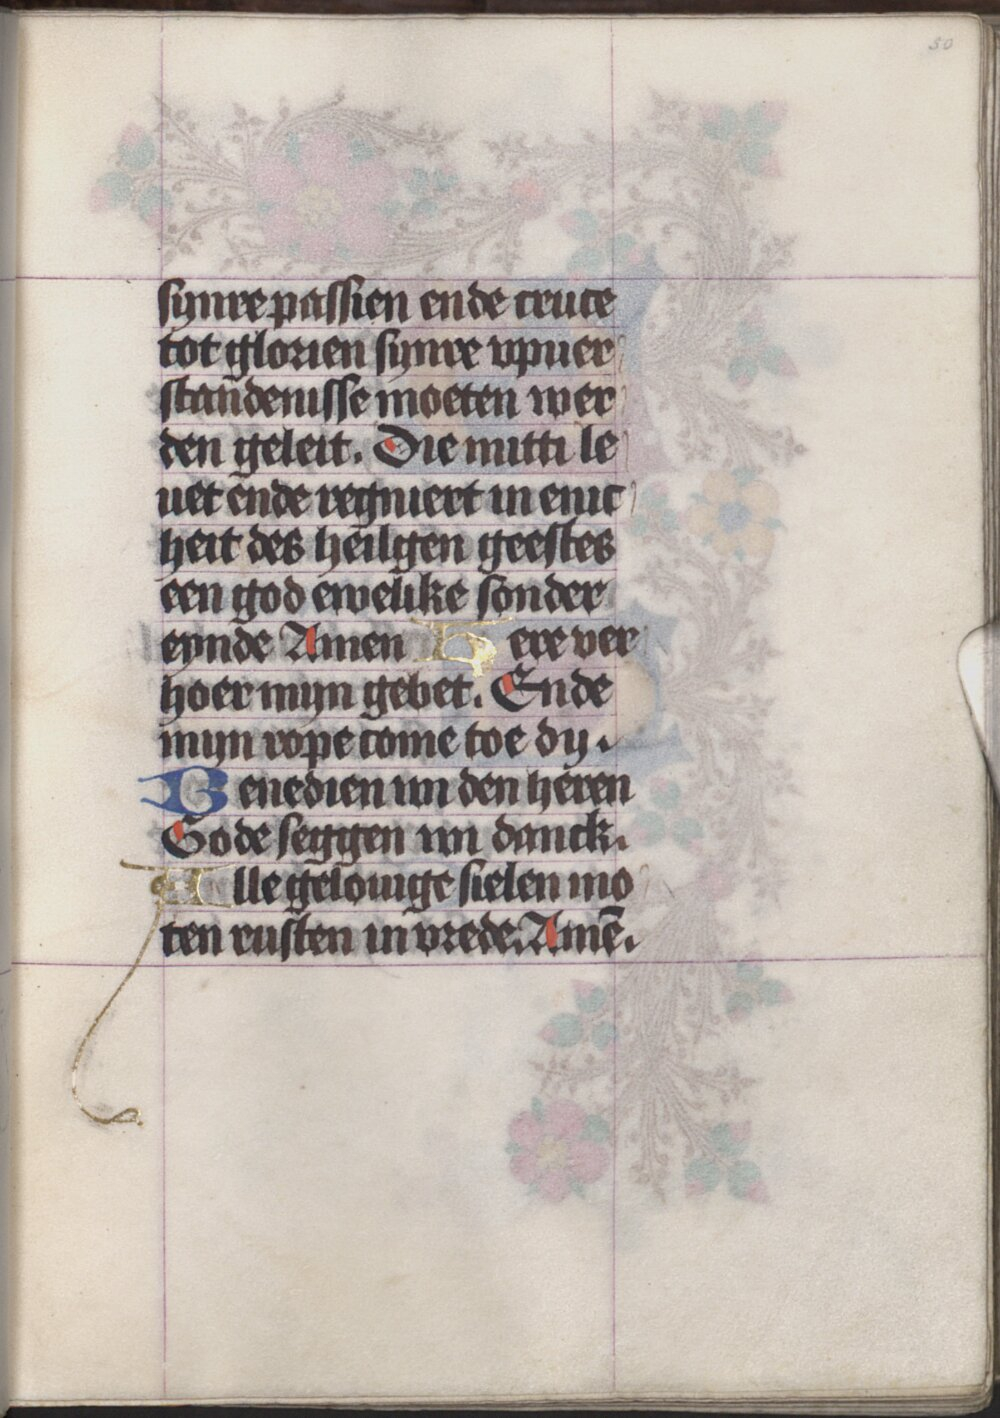 50
synre passien ende cruce
tot glorien synre vpuer
standenisse moeten wer
den geleit. Die mitti le
uet ende regniert in enic
heit des heilgen geestes
een god ewelike sonder
eynde Amen Here ver
hoer myn gebet. Ende
myn rope come toe dy.
Benedien wi den heren
Gode seggen wi danck.
Alle gelouige sielen mo
ten rusten in vrede. Amē.